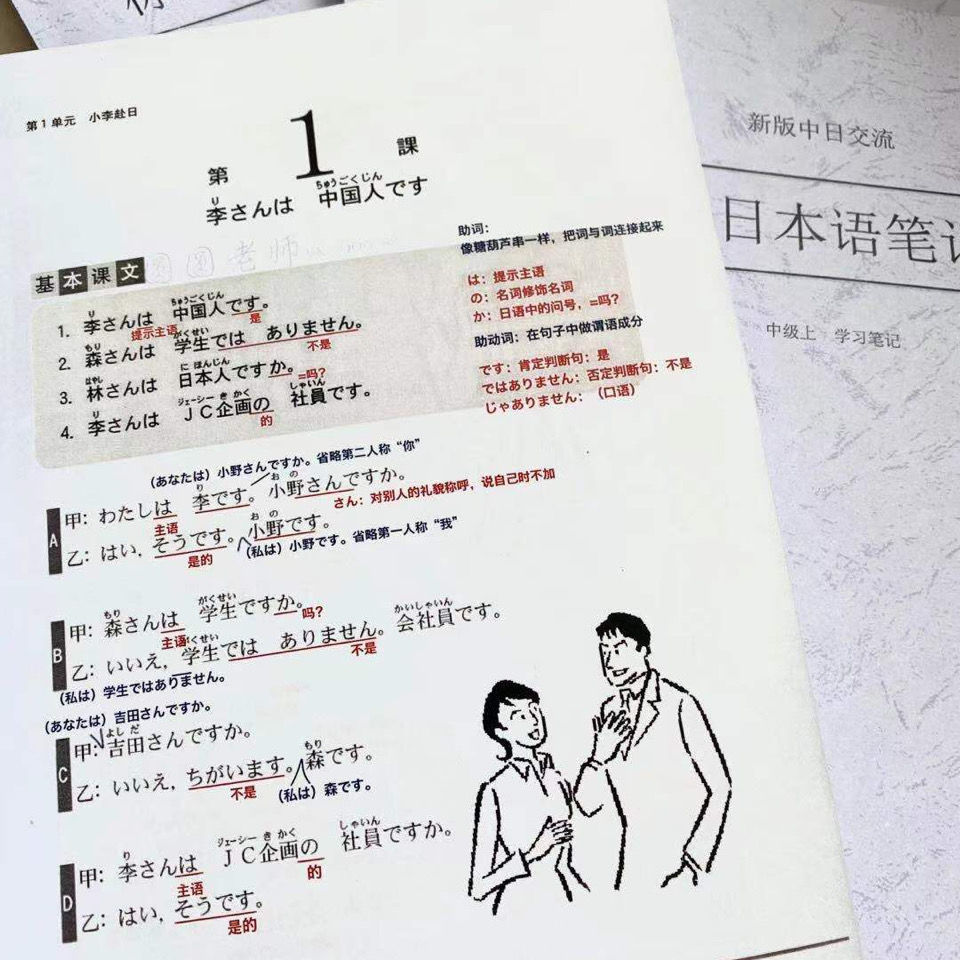 第1单元 小李赴日
第 1 課
り ちゅうごくじん
李さんは 中国人です
基本课文
圆圆老师
助词：
像糖葫芦串一样，把词与词连接起来
は：提示主语
の：名词修饰名词
か：日语中的问号，=吗？
助动词：在句子中做谓语成分
です：肯定判断句：是
ではありません：否定判断句：不是
じゃありません：（口语）
り ちゅうごくじん
1. 李さんは 中国人です。
提示主语 是
もり がくせい
2. 森さんは 学生では ありません。
不是
はやし に ほんじん
3. 林さんは 日本人ですか。
=吗？
り ジェーシー き かく しゃいん
4. 李さんは ＪＣ企画の 社員です。
的
（あなたは）小野さんですか。省略第二人称“你”
り お の
A
甲：わたしは 李です。小野さんですか。
主语
さん：对别人的礼貌称呼，说自己时不加
お の
乙：はい，そうです。小野です。
是的
（私は）小野です。省略第一人称“我”
もり がくせい
B
甲：森さんは 学生ですか。
主语 吗？
がくせい かいしゃいん
乙：いいえ，学生では ありません。会社員です。
不是
（私は）学生ではありません。
（あなたは）吉田さんですか。
よし だ
C
甲：吉田さんですか。
もり
乙：いいえ，ちがいます。森です。
不是
（私は）森です。
り ジェーシー き かく しゃいん
D
甲：李さんは ＪＣ企画の 社員ですか。
主语 的
乙：はい，そうです。
是的
新版中日交流
日本语笔
中级上 学习笔记